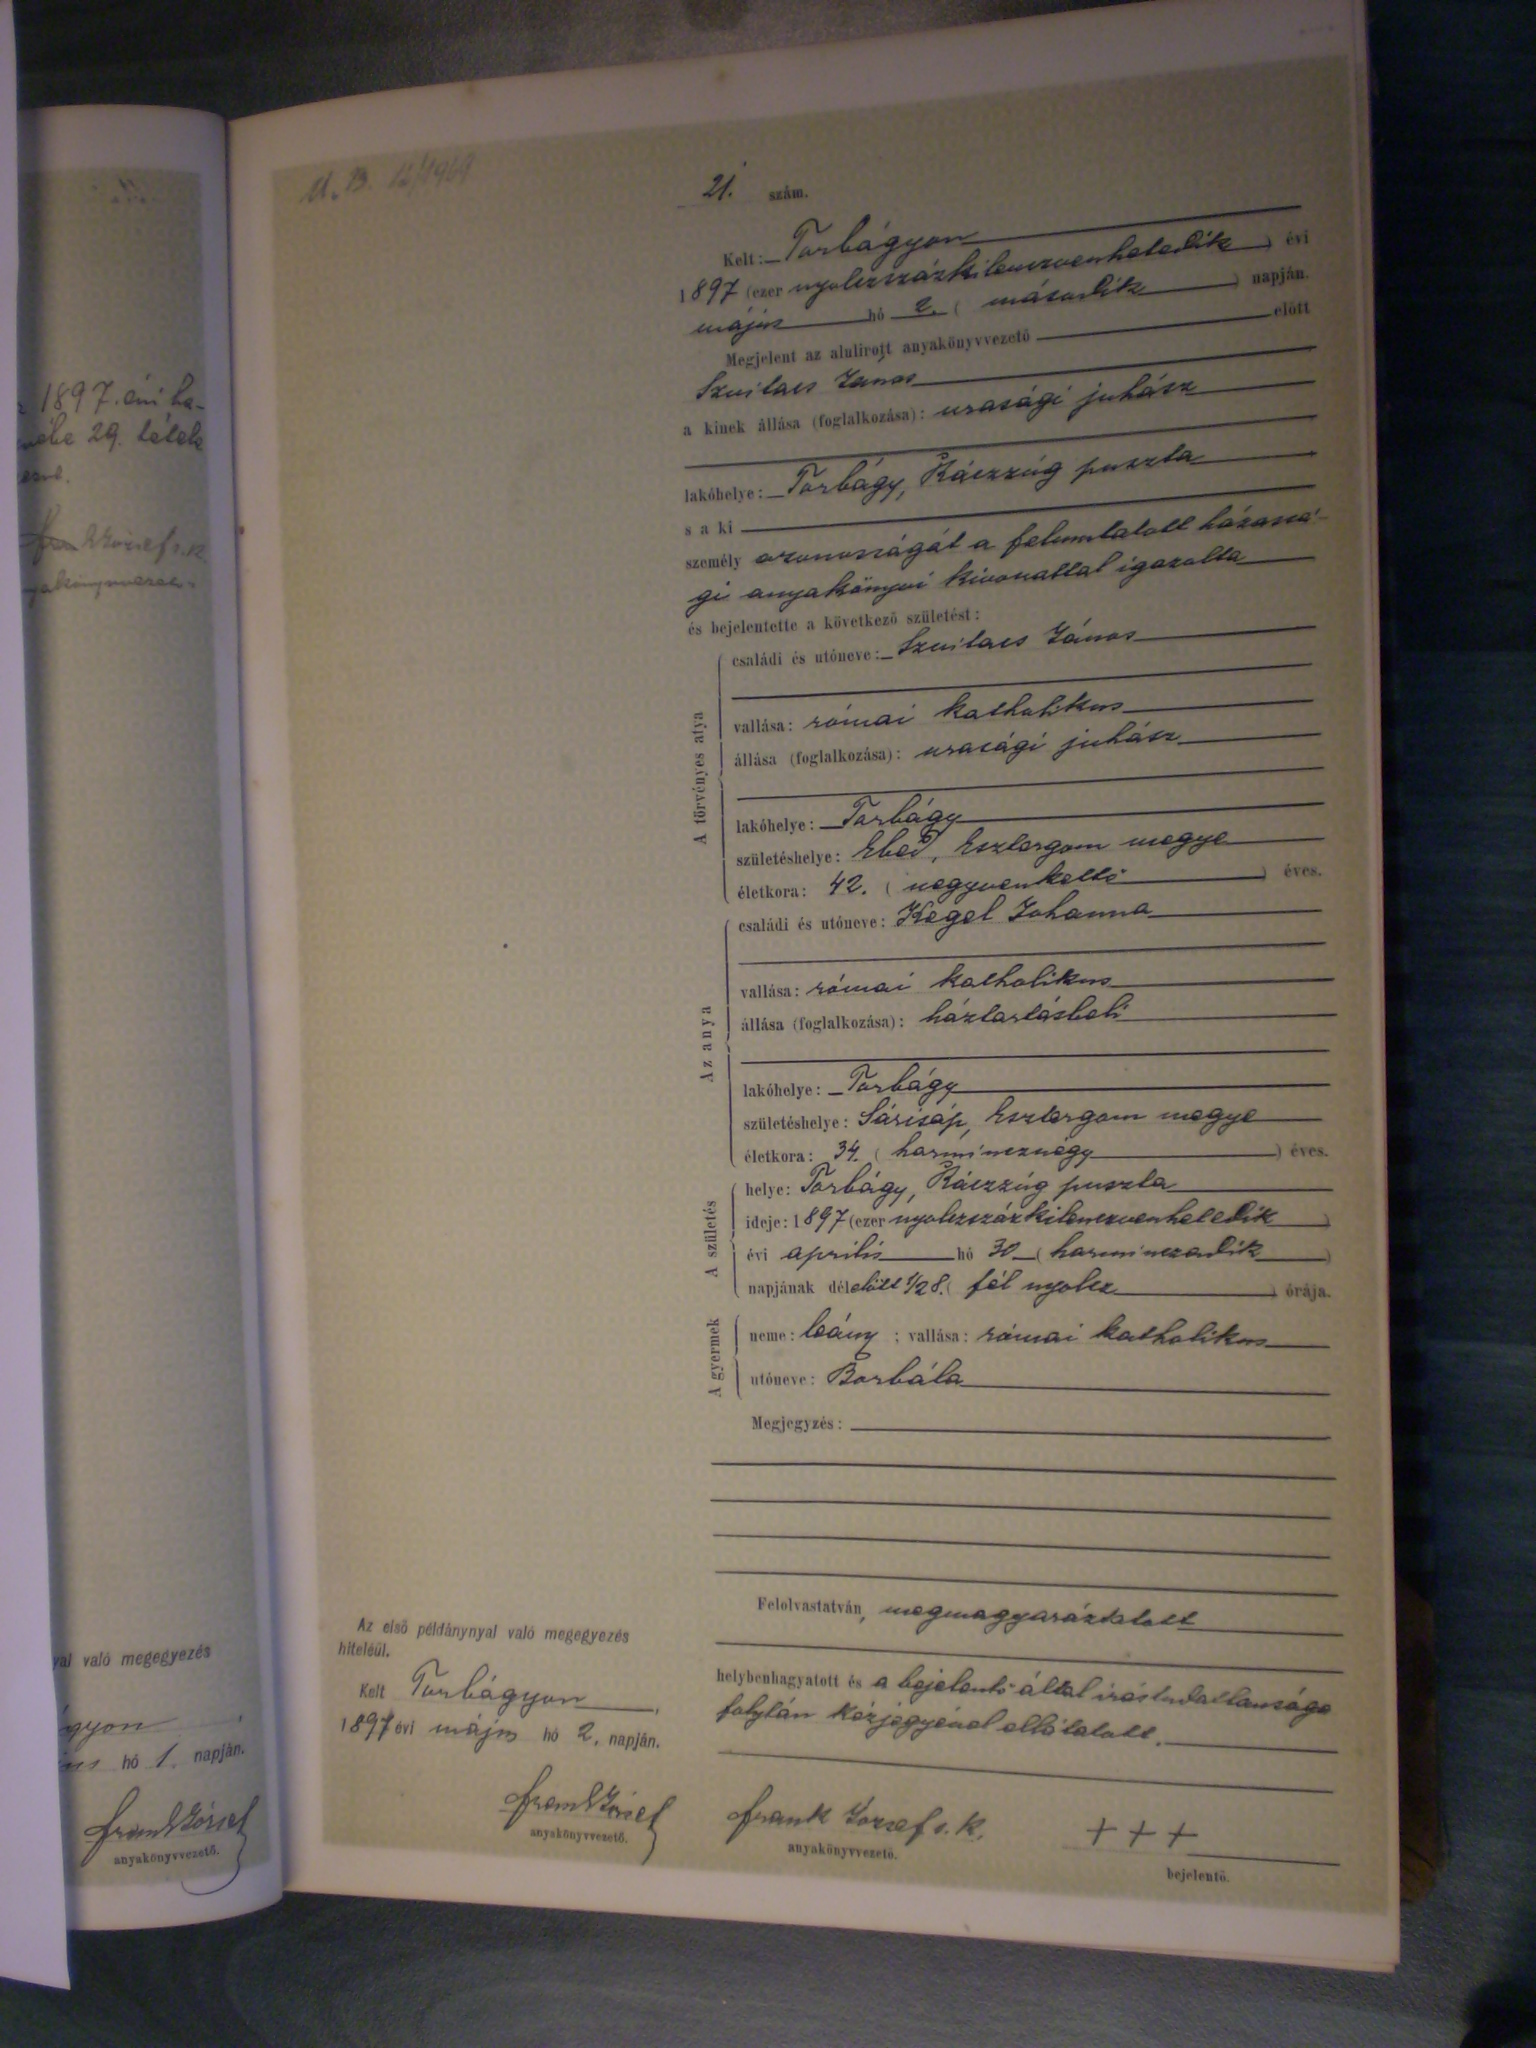 1897. évi ha-
29. tétele
József s. k.
való megegyezés
hó 1. napján.
Frank József
anyakönyvvezető.
21. szám.
Kelt: Torbágyon
1897 (ezer nyolczszázkilenczvenhetedik) évi
május hó 2. (második) napján.
Megjelent az alulirott anyakönyvvezető előtt
Szvilacs János
a kinek állása (foglalkozása): urasági juhász
lakóhelye: Torbágy, Ráczzúg puszta
s a ki
személy azonosságát a felmutatott házassá-
gi anyakönyvi kivonattal igazolta
és bejelentette a következő születést:
A törvényes atya
családi és utóneve: Szvilacs János
vallása: római katholikus
állása (foglalkozása): urasági juhász
lakóhelye: Torbágy
születéshelye: Ebed, Esztergom megye
életkora: 42. (negyvenkettő) éves.
Az anya
családi és utóneve: Kegel Johanna
vallása: római katholikus
állása (foglalkozása): háztartásbeli
lakóhelye: Torbágy
születéshelye: Sárisáp, Esztergom megye
életkora: 34. (harmincznégy) éves.
A születés
helye: Torbágy, Ráczzúg puszta
ideje: 1897 (ezer nyolczszázkilenczvenhetedik)
évi április hó 30 (harminczadik)
napjának délelőtt 1/28. (fél nyolcz) órája.
A gyermek
neme: leány; vallása: római katholikus
utóneve: Borbála
Megjegyzés:
Felolvastatván, megmagyaráztatott
helybenhagyatott és a bejelentő által irástudatlansága
folytán kézjegyével elláttatott.
Frank József s. k.
anyakönyvvezető.
+++
bejelentő.
Az első példánynyal való megegyezés
hiteléül.
Kelt Torbágyon,
1897 évi május hó 2. napján.
Frank József
anyakönyvvezető.